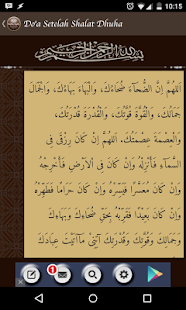 10:15
Do'a Setelah Shalat Dhuha
بسم الله الرحمن الرحيم
اَللّٰهُمَّ اِنَّ الضُّحَآءَ ضُحَاءُكَ، وَالْبَهَاءَ بَهَاءُكَ، وَالْجَمَالَ
جَمَالُكَ، وَالْقُوَّةَ قُوَّتُكَ، وَالْقُدْرَةَ قُدْرَتُكَ،
وَالْعِصْمَةَ عِصْمَتُكَ. اَللّٰهُمَّ اِنْ كَانَ رِزْقِى فِى
السَّمَآءِ فَأَنْزِلْهُ وَاِنْ كَانَ فِى اْلاَرْضِ فَأَخْرِجْهُ
وَاِنْ كَانَ مُعَسَّرًا فَيَسِّرْهُ وَاِنْ كَانَ حَرَامًا فَطَهِّرْهُ
وَاِنْ كَانَ بَعِيْدًا فَقَرِّبْهُ بِحَقِّ ضُحَاءِكَ وَبَهَاءِكَ
وَجَمَالِكَ وَقُوَّتِكَ وَقُدْرَتِكَ آتِنِيْ مَآاَتَيْتَ عِبَادَكَ
1